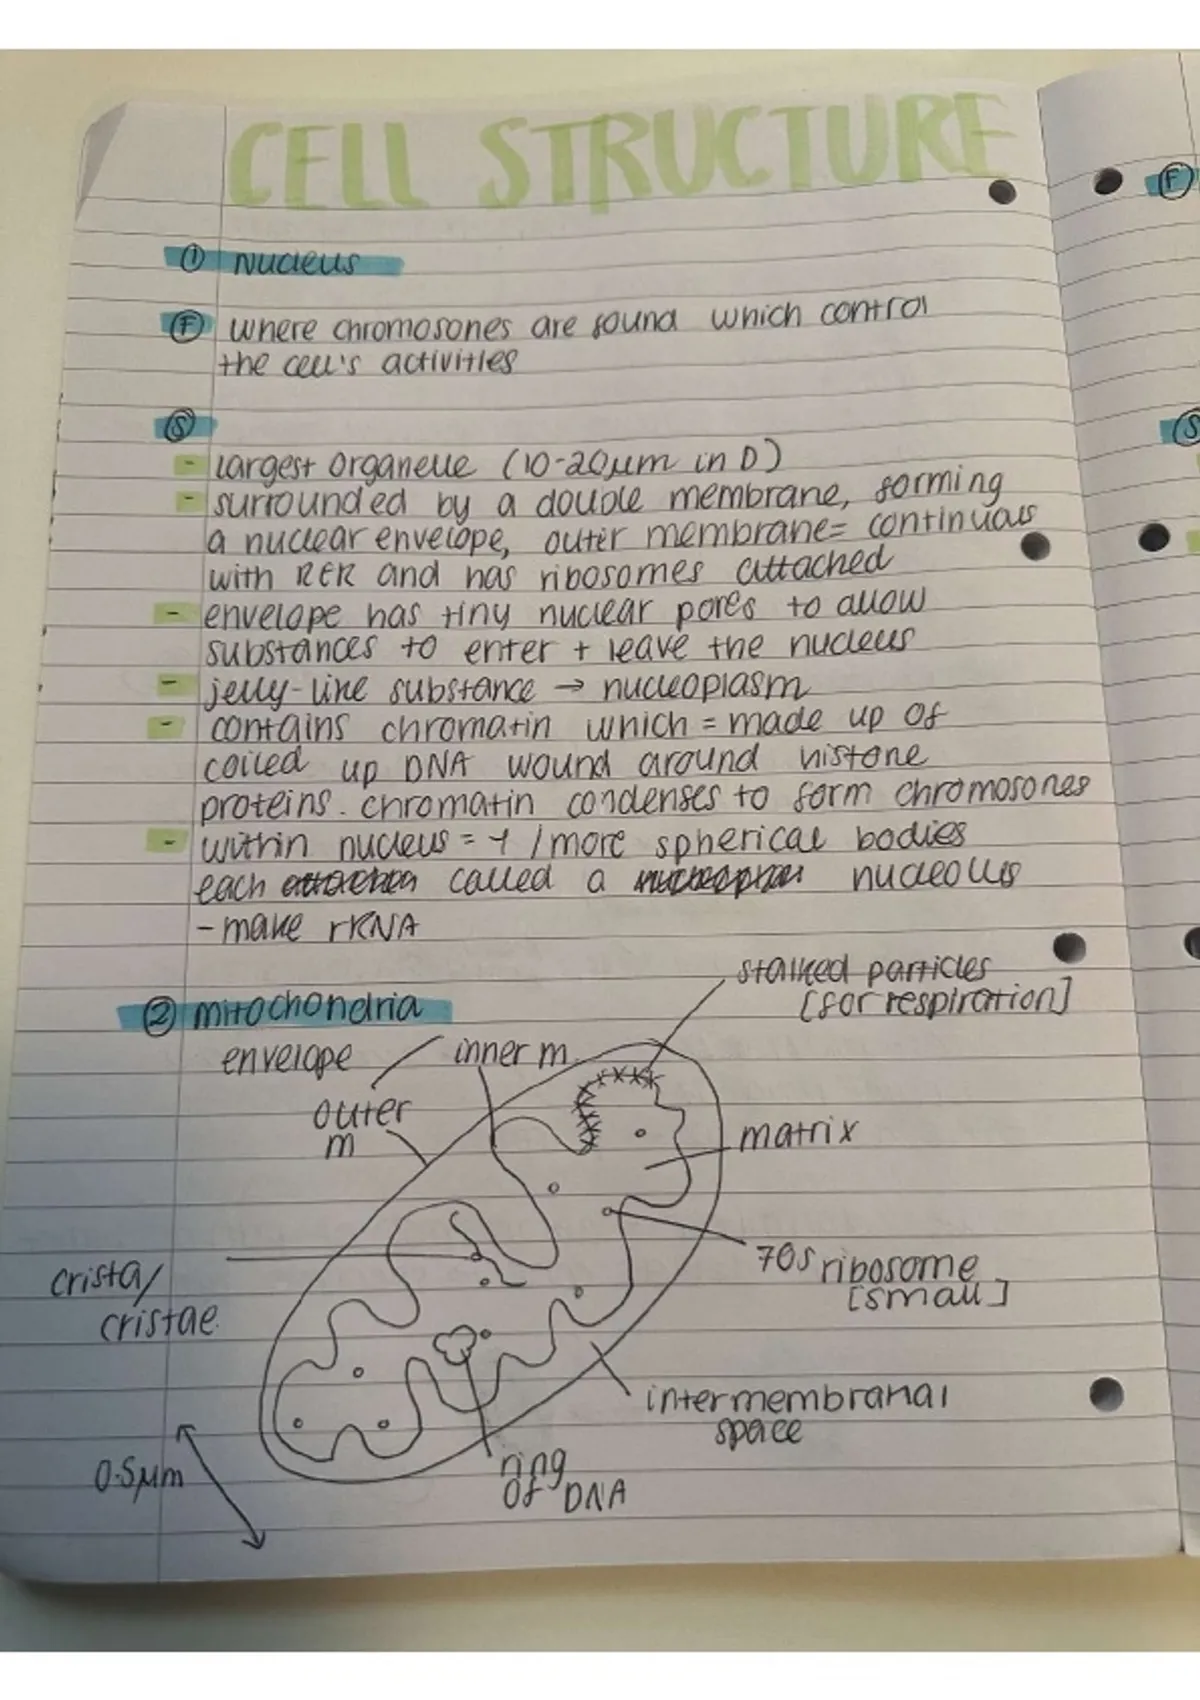 CELL STRUCTURE
① nucleus
Ⓕ where chromosones are found which control
the cell's activities
Ⓢ
- largest organelle (10-20μm in D)
- surrounded by a double membrane, forming
a nuclear envelope, outer membrane= continuous
with RER and has ribosomes attached
- envelope has tiny nuclear pores to allow
substances to enter + leave the nucleus
- jelly-like substance → nucleoplasm
- contains chromatin which = made up of
coiled up DNA wound around histone
proteins. chromatin condenses to form chromosones
- within nucleus = 1 / more spherical bodies
each called a nucleolus
- make rRNA
② mitochondria
stalked particles
[for respiration]
envelope
inner m
outer
m
matrix
crista/
cristae
70S ribosome
[small]
intermembranal
space
0.5μm
ring
of DNA
Ⓕ
Ⓢ